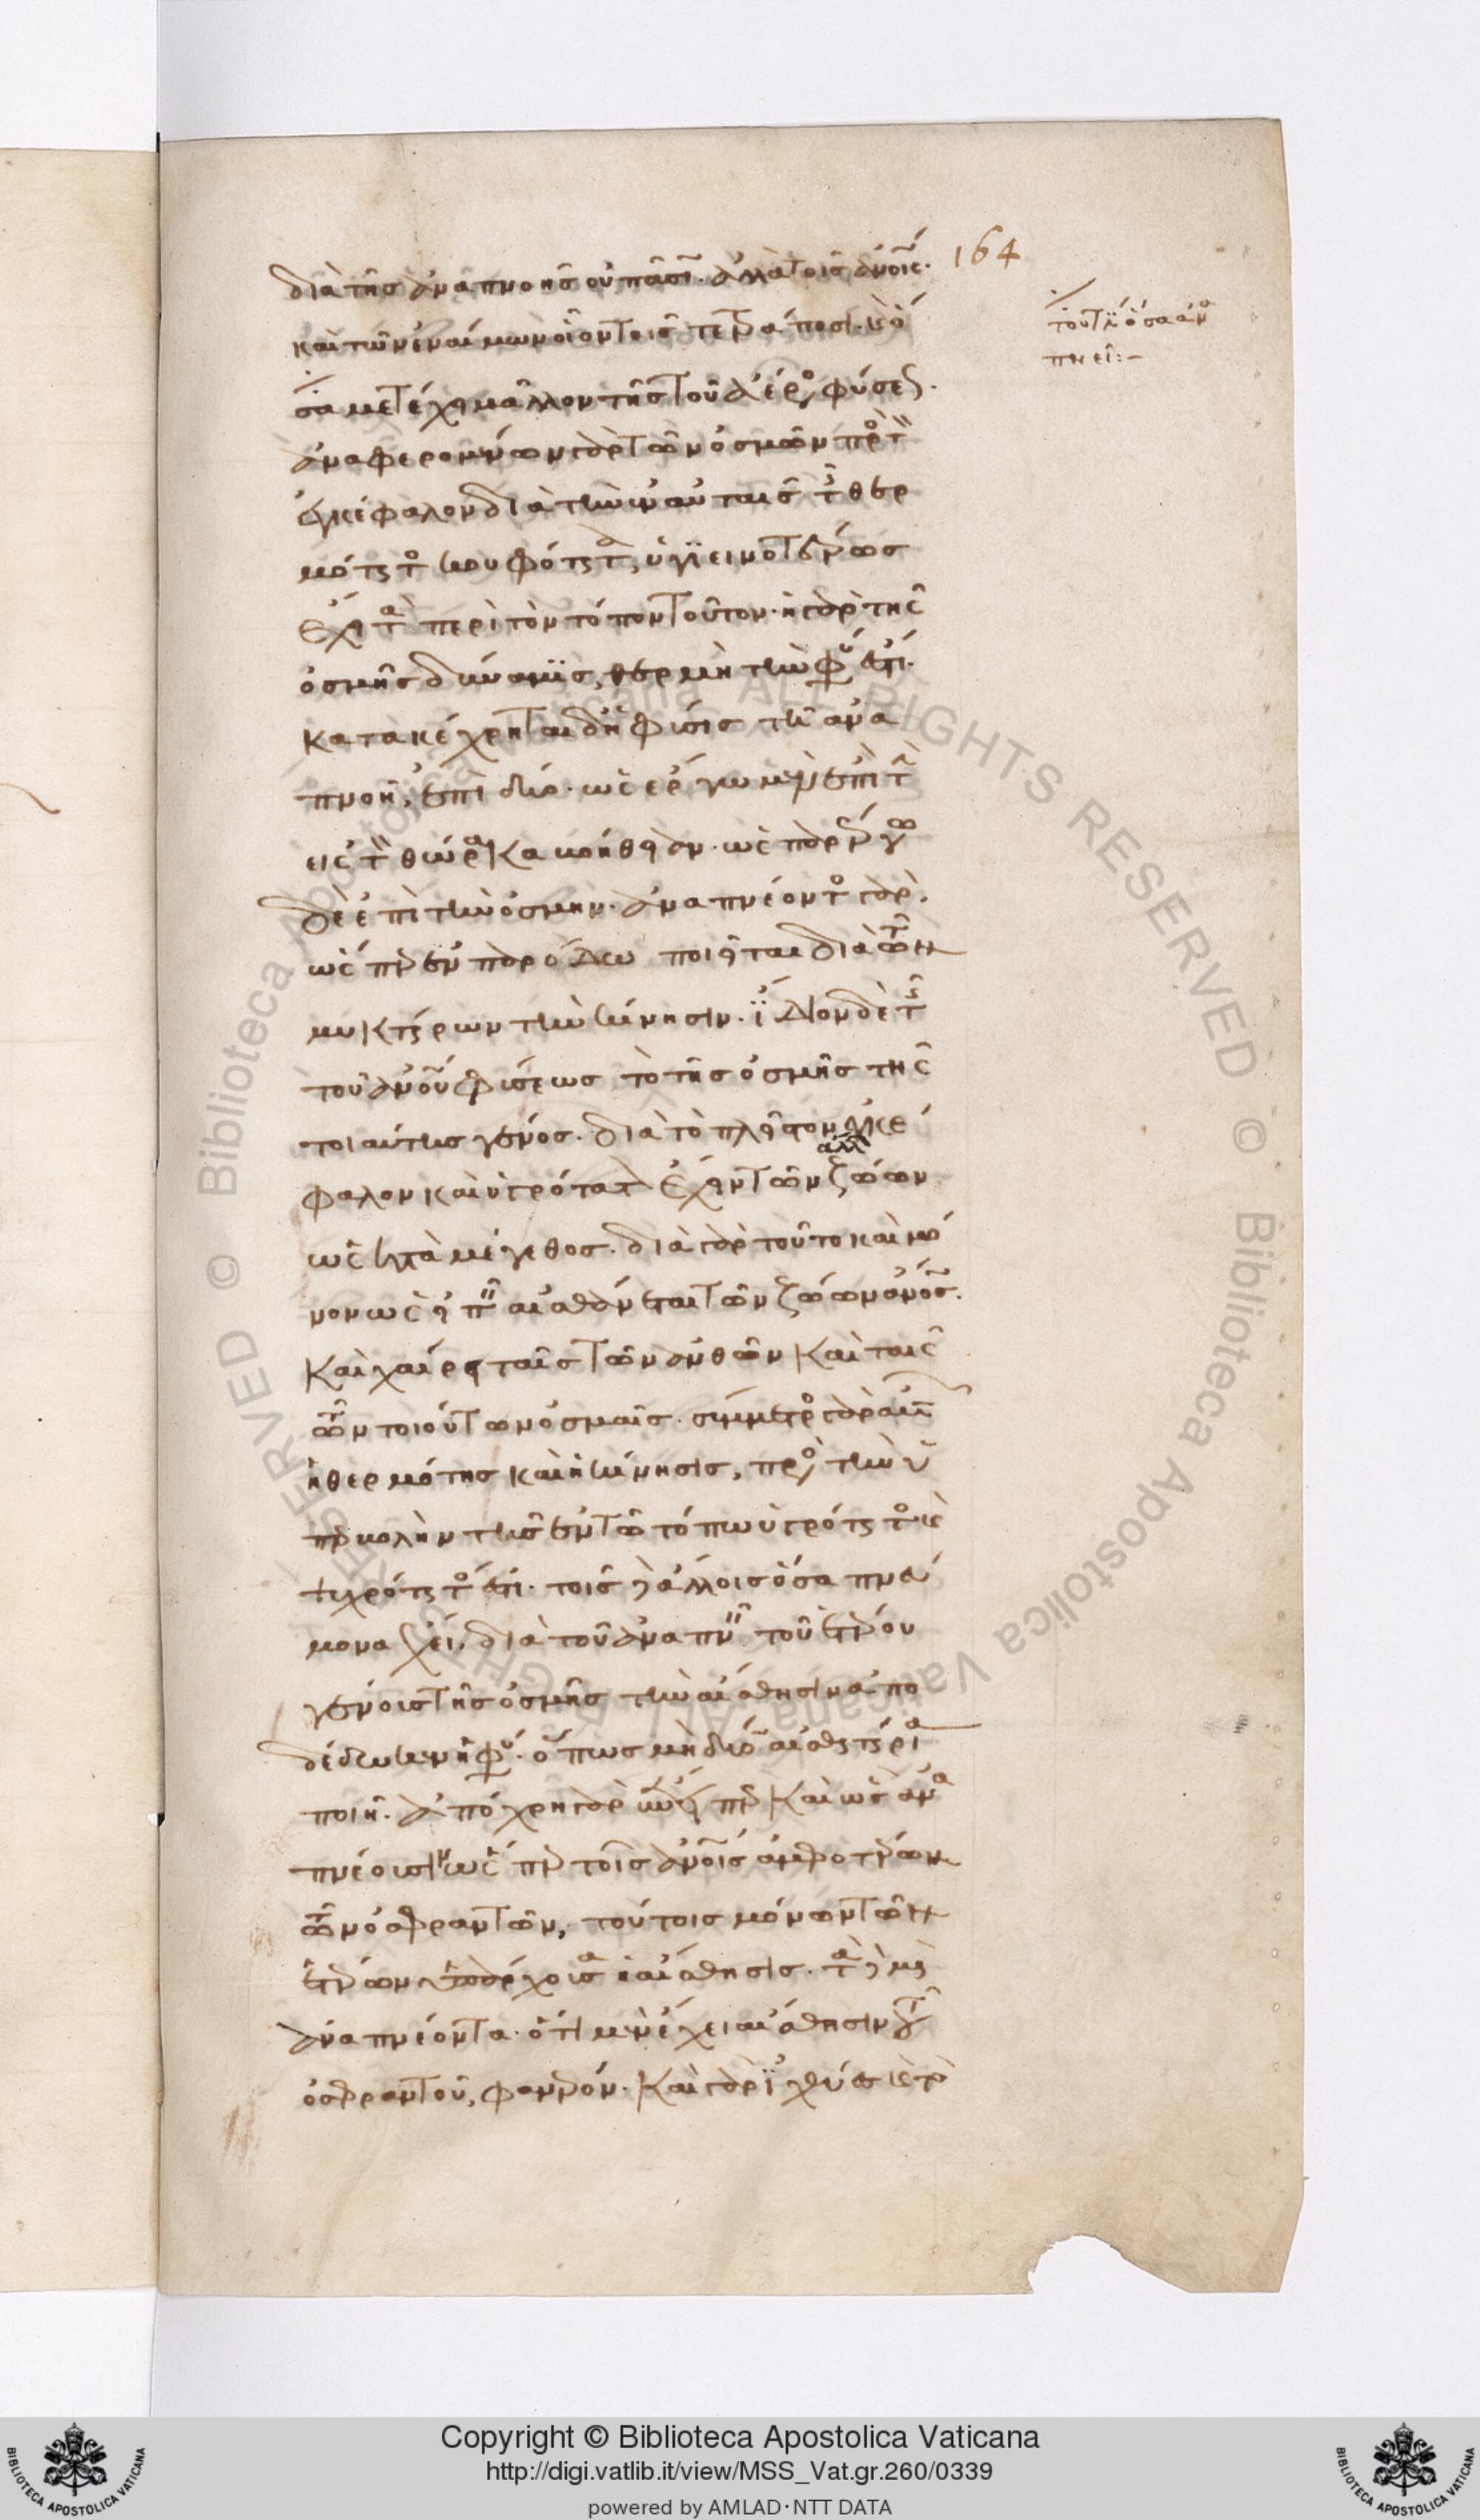 διὰ τῆς ἀναπνοῆς οὐ πᾶσι. ἀλλὰ τοῖς ἀν̅οις.
καὶ τῶν ἐναίμων οἷον τοῖς τετράποσι. κ(αὶ) ὅ
σα μετέχει μᾶλλον τῆς τοῦ ἀέρο(ς) φύσε(ως).
ἀναφερομένων γὰρ τῶν ὀσμῶν πρὸ(ς) τ(ὸν)
ἐγκέφαλον διὰ τὴν ἐν αὐταῖς τ(ῆς) θερ
μότητο(ς) κουφότητα, ὑγιεινοτέρως
ἔχει τὰ περὶ τὸν τόπον τοῦτον. ἡ γὰρ τῆς
ὀσμῆς δύναμις, θερμὴ τὴν φύ(σιν) ἐστί.
κατακέχρηται δ' ἡ φύσις τῇ ἀνα
πνοῇ, ἐπὶ δύο. ὡς ἔργω μὲν ἐπὶ τὴν
εἰς τ(ὸν) θώρακα βοήθειαν. ὡς παρέργω
δὲ ἐπὶ τὴν ὀσμήν. ἀναπνέοντο(ς) γὰρ.
ὥσπερ ἐν παρόδω ποιεῖται διὰ τῶν
μυκτήρων τὴν κίνησιν. ἴδιον δὲ τῆς
τοῦ ἀν̅ου φύσεως τὸ τῆς ὀσμῆς τῆς
τοιαύτης γένος. διὰ τὸ πλεῖστον ἐγκέ
φαλον καὶ ὑγρότατον ἔχειν τῶν ἄλλ(ων) ζώων
ὡς κατὰ μέγεθος. διὰ γὰρ τοῦτο καὶ μό
νον ὡς εἰπεῖν αἰσθάνεται τῶν ζώων ἄν̅ος.
καὶ χαίρει ταῖς τῶν ἀνθῶν καὶ ταῖς
τῶν τοιούτων ὀσμαῖς. σύμμετρο(ς) γὰρ αὐτῶν
ἡ θερμότης καὶ ἡ κίνησις, πρὸ(ς) τὴν ὑ
περβολὴν τῆς ἐν τῶ τόπω ὑγρότητο(ς) κ(αὶ)
ψυχρότητο(ς) ἐστί. τοῖς δ' ἄλλοις ὅσα πνεύ
μονα ἔχει. διὰ τοῦ ἀναπνεῖν τοῦ ἑτέρου
γένους τῆς ὀσμῆς τὴν αἴσθησιν ἀπο
δέδωκεν ἡ φύ(σις). ὅπως μὴ δύο αἰσθητήρια
ποιῇ. ἀπόχρη γὰρ ἐπείπερ καὶ ὣς ἀνα
πνέουσιν ὥσπερ τοῖς ἀν̅οις ἀμφοτέρων
τῶν ὀσφραντῶν, τούτοις μόνων τῶν
ἑτέρων ὑπάρχουσα ἡ αἴσθησις. τὰ δὲ μὴ
ἀναπνέοντα. ὅτι μὲν ἔχει αἴσθησιν τοῦ
ὀσφραντοῦ, φανερόν. καὶ γὰρ ἰχθύες κ(αὶ) τὸ
164
τουτέστιν ὅσα ἀνα
πνεῖ:~
Copyright © Biblioteca Apostolica Vaticana
http://digi.vatlib.it/view/MSS_Vat.gr.260/0339
powered by AMLAD·NTT DATA